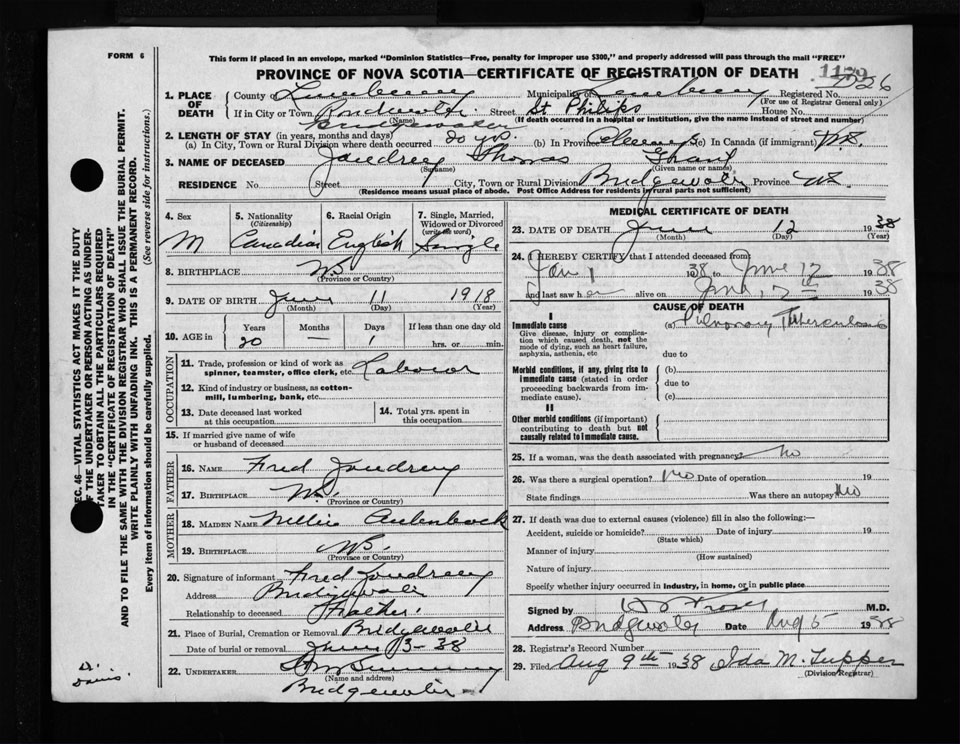 FORM 6
This form if placed in an envelope, marked "Dominion Statistics—Free, penalty for improper use $300," and properly addressed will pass through the mail "FREE"
PROVINCE OF NOVA SCOTIA—CERTIFICATE OF REGISTRATION OF DEATH
1179
1. PLACE OF DEATH
County of Lunenburg Municipality of Lunenburg Registered No.
(For use of Registrar General only)
If in City or Town Street St Philips House No.
(Name) (If death occurred in a hospital or institution, give the name instead of street and number)
Bridgewater
2. LENGTH OF STAY (in years, months and days)
(a) In City, Town or Rural Division where death occurred 20 yrs. (b) In Province Always (c) In Canada (if immigrant) N.S.
3. NAME OF DECEASED Joudrey Thomas Grant
(Surname) (Given name or names)
RESIDENCE No. Street City, Town or Rural Division Bridgewater Province N.S.
(Residence means usual place of abode. Post Office Address for residents in rural parts not sufficient)
4. Sex
M
5. Nationality
(Citizenship)
Canadian
6. Racial Origin
English
7. Single, Married, Widowed or Divorced
(write the word)
Single
8. BIRTHPLACE N.S.
(Province or Country)
9. DATE OF BIRTH June 11 1918
(Month) (Day) (Year)
10. AGE in Years Months Days If less than one day old
20 — 1 hrs. or min.
OCCUPATION
11. Trade, profession or kind of work as spinner, teamster, office clerk, etc. Laborer
12. Kind of industry or business, as cotton-mill, lumbering, bank, etc.
13. Date deceased last worked at this occupation
14. Total yrs. spent in this occupation
15. If married give name of wife or husband of deceased
FATHER
16. NAME Fred Joudrey
17. BIRTHPLACE N.S.
(Province or Country)
MOTHER
18. MAIDEN NAME Nellie Aulenback
19. BIRTHPLACE N.S.
(Province or Country)
20. Signature of informant Fred Joudrey
Address Bridgewater
Relationship to deceased Father
21. Place of Burial, Cremation or Removal Bridgewater
Date of burial or removal June 13-38
22. UNDERTAKER
(Name and address)
Bridgewater
MEDICAL CERTIFICATE OF DEATH
23. DATE OF DEATH June 12 1938
(Month) (Day) (Year)
24. I HEREBY CERTIFY that I attended deceased from
Jan 1 1938 to June 12 1938
and last saw h alive on June 12th 1938
CAUSE OF DEATH
I
Immediate cause (a) Pulmonary Tuberculosis
Give disease, injury or complication which caused death, not the mode of dying, such as heart failure, asphyxia, asthenia, etc
due to
Morbid conditions, if any, giving rise to immediate cause (stated in order proceeding backwards from immediate cause).
(b)
due to
(c)
II
Other morbid conditions (if important) contributing to death but not causally related to immediate cause.
25. If a woman, was the death associated with pregnancy? No
26. Was there a surgical operation? No Date of operation 19
State findings Was there an autopsy? No
27. If death was due to external causes (violence) fill in also the following:—
Accident, suicide or homicide? Date of injury 19
(State which)
Manner of injury
(How sustained)
Nature of injury
Specify whether injury occurred in industry, in home, or in public place
Signed by M.D.
Address Bridgewater Date Aug 5 1938
28. Registrar's Record Number
29. Filed Aug 9th 1938 Ida M. Tupper
(Division Registrar)
SEC. 46—VITAL STATISTICS ACT MAKES IT THE DUTY
OF THE UNDERTAKER OR PERSON ACTING AS UNDERTAKER TO OBTAIN ALL THE PARTICULARS REQUIRED
IN THE "CERTIFICATE OF REGISTRATION OF DEATH"
AND TO FILE THE SAME WITH THE DIVISION REGISTRAR WHO SHALL ISSUE THE BURIAL PERMIT.
WRITE PLAINLY WITH UNFADING INK. THIS IS A PERMANENT RECORD.
Every item of information should be carefully supplied. (See reverse side for instructions.)